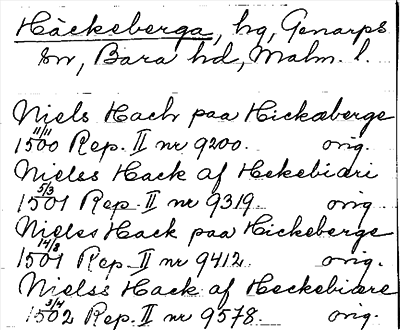 Häckeberga, hg, Genarps
sn, Bara hd, Malm. l.
Niels Hack paa Hickæberge
1500 11/11 Rep. II nr 9200. orig.
Nieles Hack af Hekebiæri
1501 5/3 Rep. II nr 9319 orig.
Nieles Hack paa Hickeberge
1501 14/8 Rep. II nr 9412 orig.
Nielss Hack af Heckebiære
1502 3/4 Rep. II nr 9578. orig.